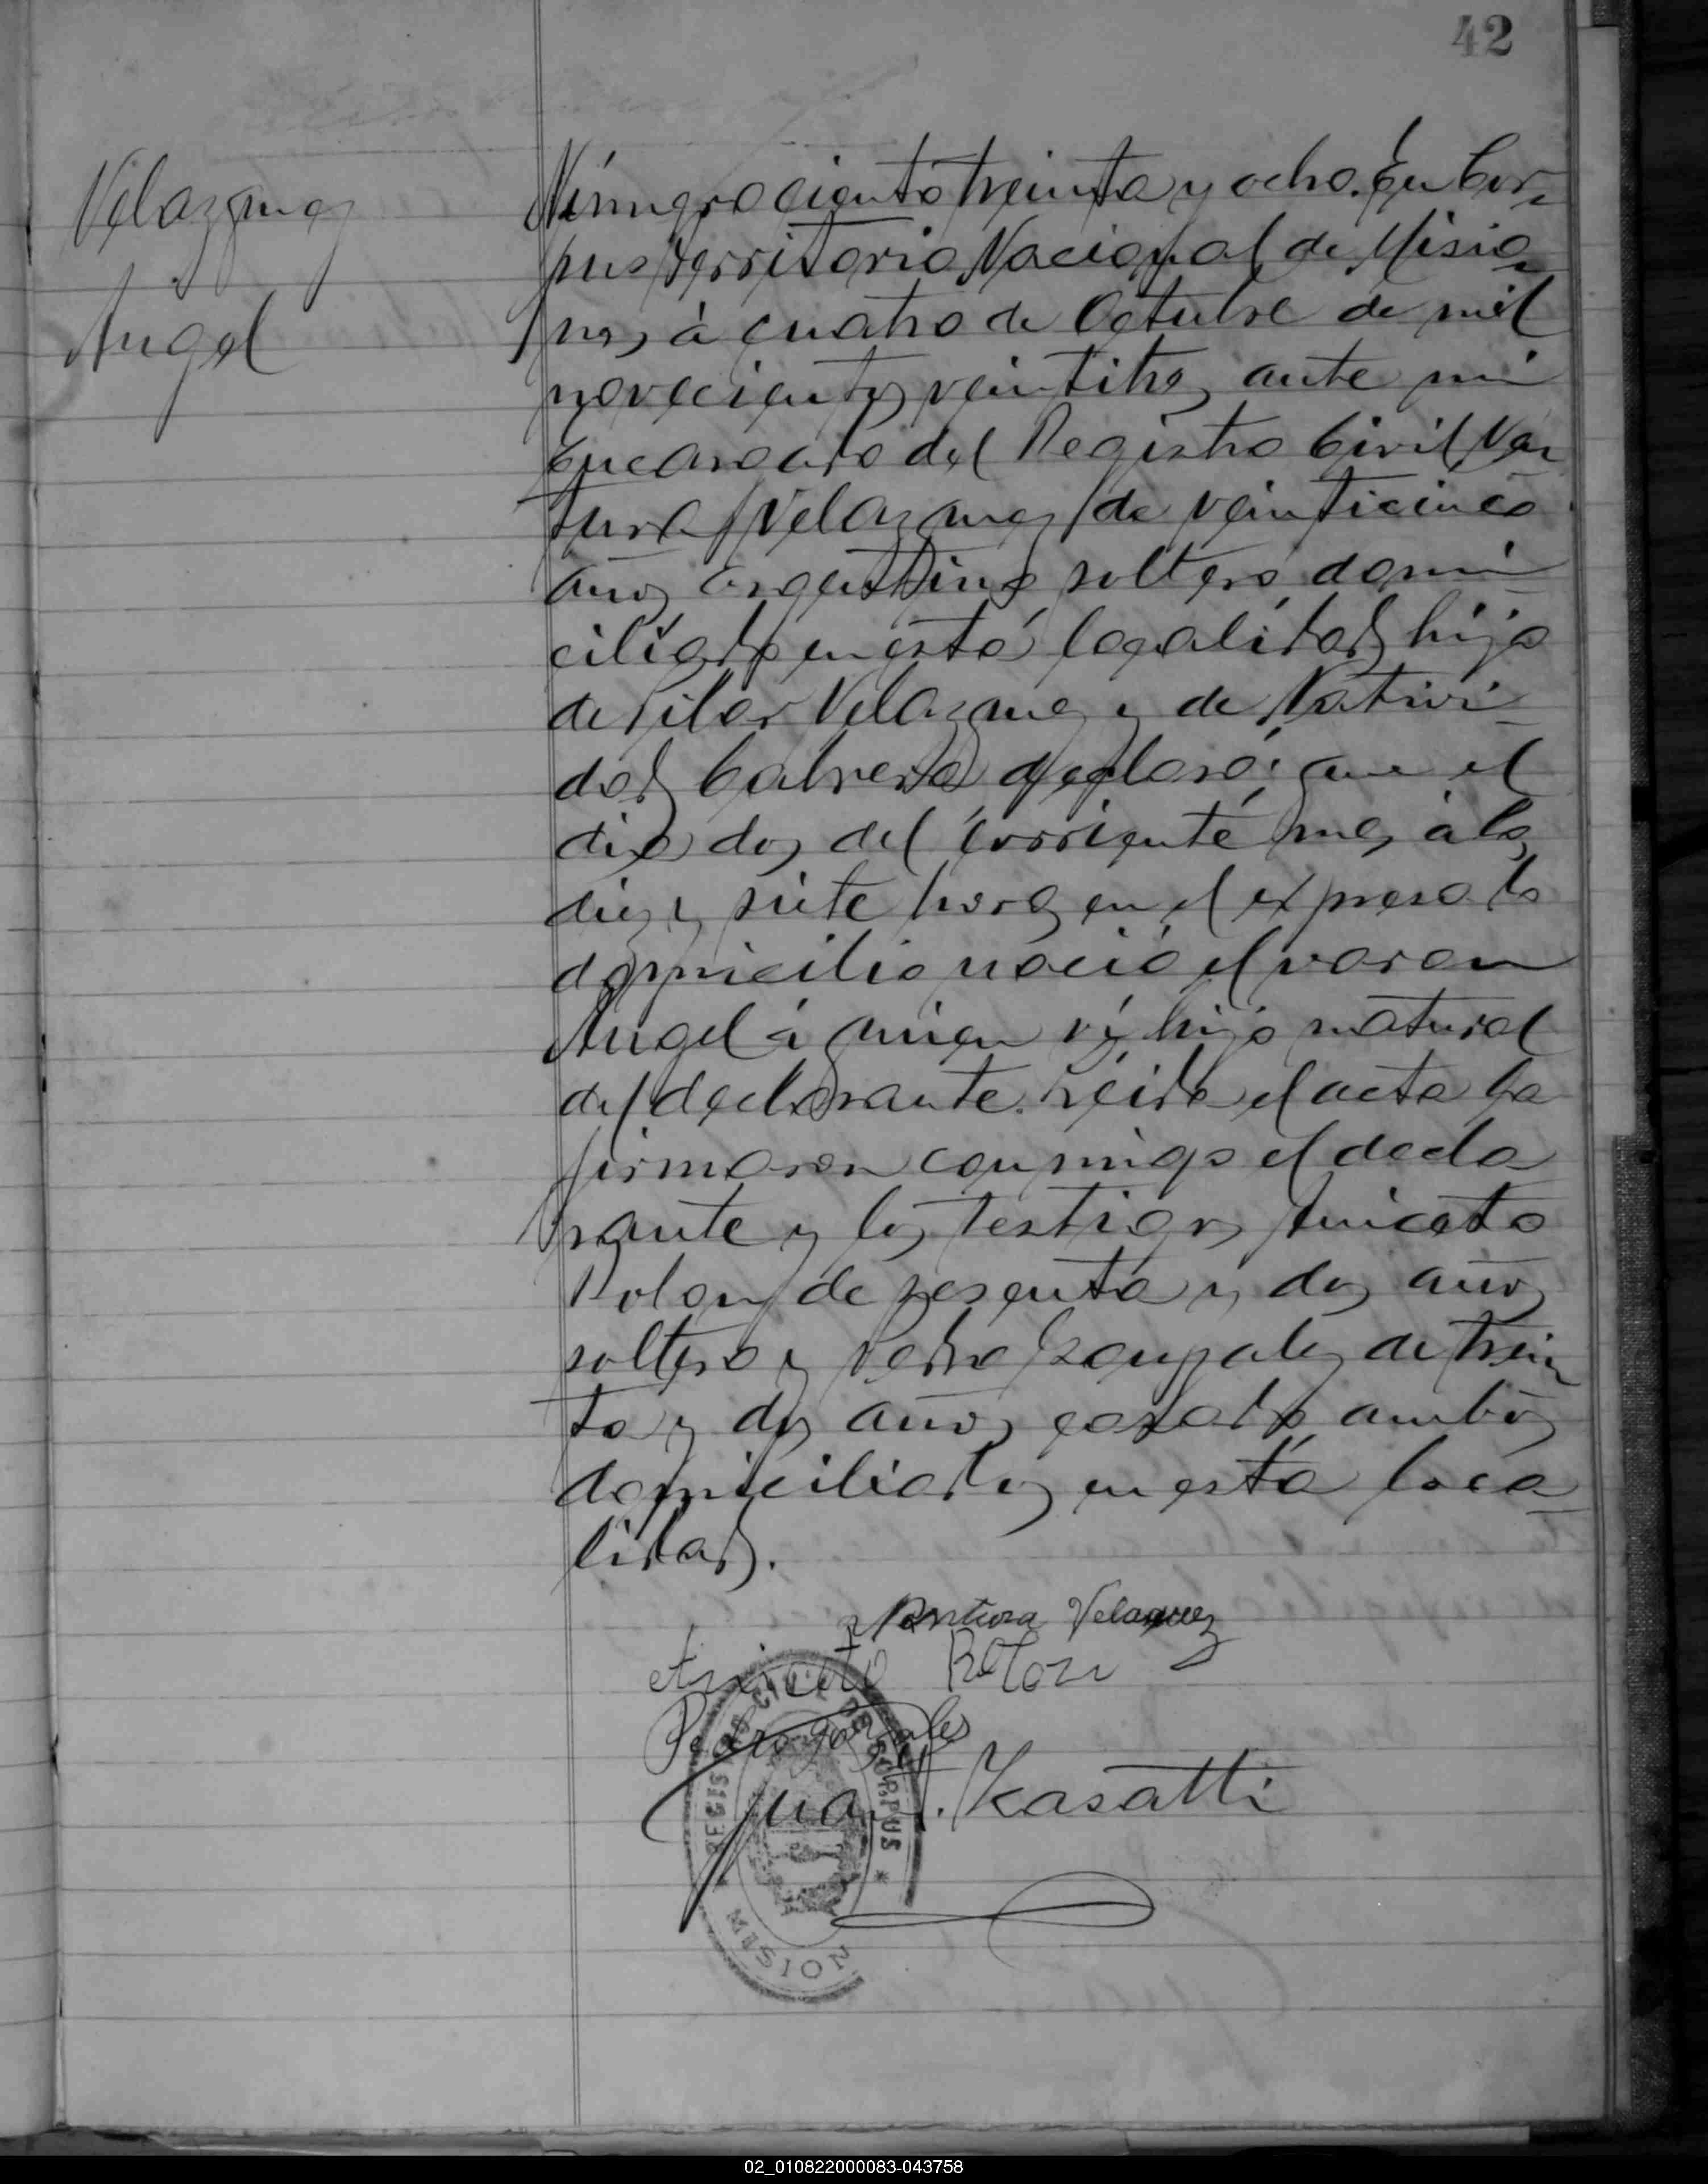 42
Velazquez
Angel
Número ciento treinta y ocho. En Cor-
pus territorio Nacional de Misio-
nes, à cuatro de Octubre de mil
novecientos veintitres ante mi
Encargado del Registro Civil Ven
tura Velazquez de veinticinco
años argentino soltero domi-
ciliado en esta localidad hijo
de Pilar Velazquez y de Nativi-
dad Cabrera declaró: que el
dia dos del corriente mes à las
diez y siete horas en el expresado
domicilio nació el varon
Angel à quien ví hijo natural
del declarante. Leida el acta la
firmaron conmigo el decla
rante y los testigos Aniceto
Rolon de sesenta y dos años
soltero y Pedro Gonzalez de trein
ta y dos años casado ambos
domiciliados en esta loca-
lidad.
Bentura Velaquez
Aniceto Rolon
Pedro gonzales
Juan Kasatti
REGISTRO CIVIL DE CORPUS
MISION
02_010822000083-043758